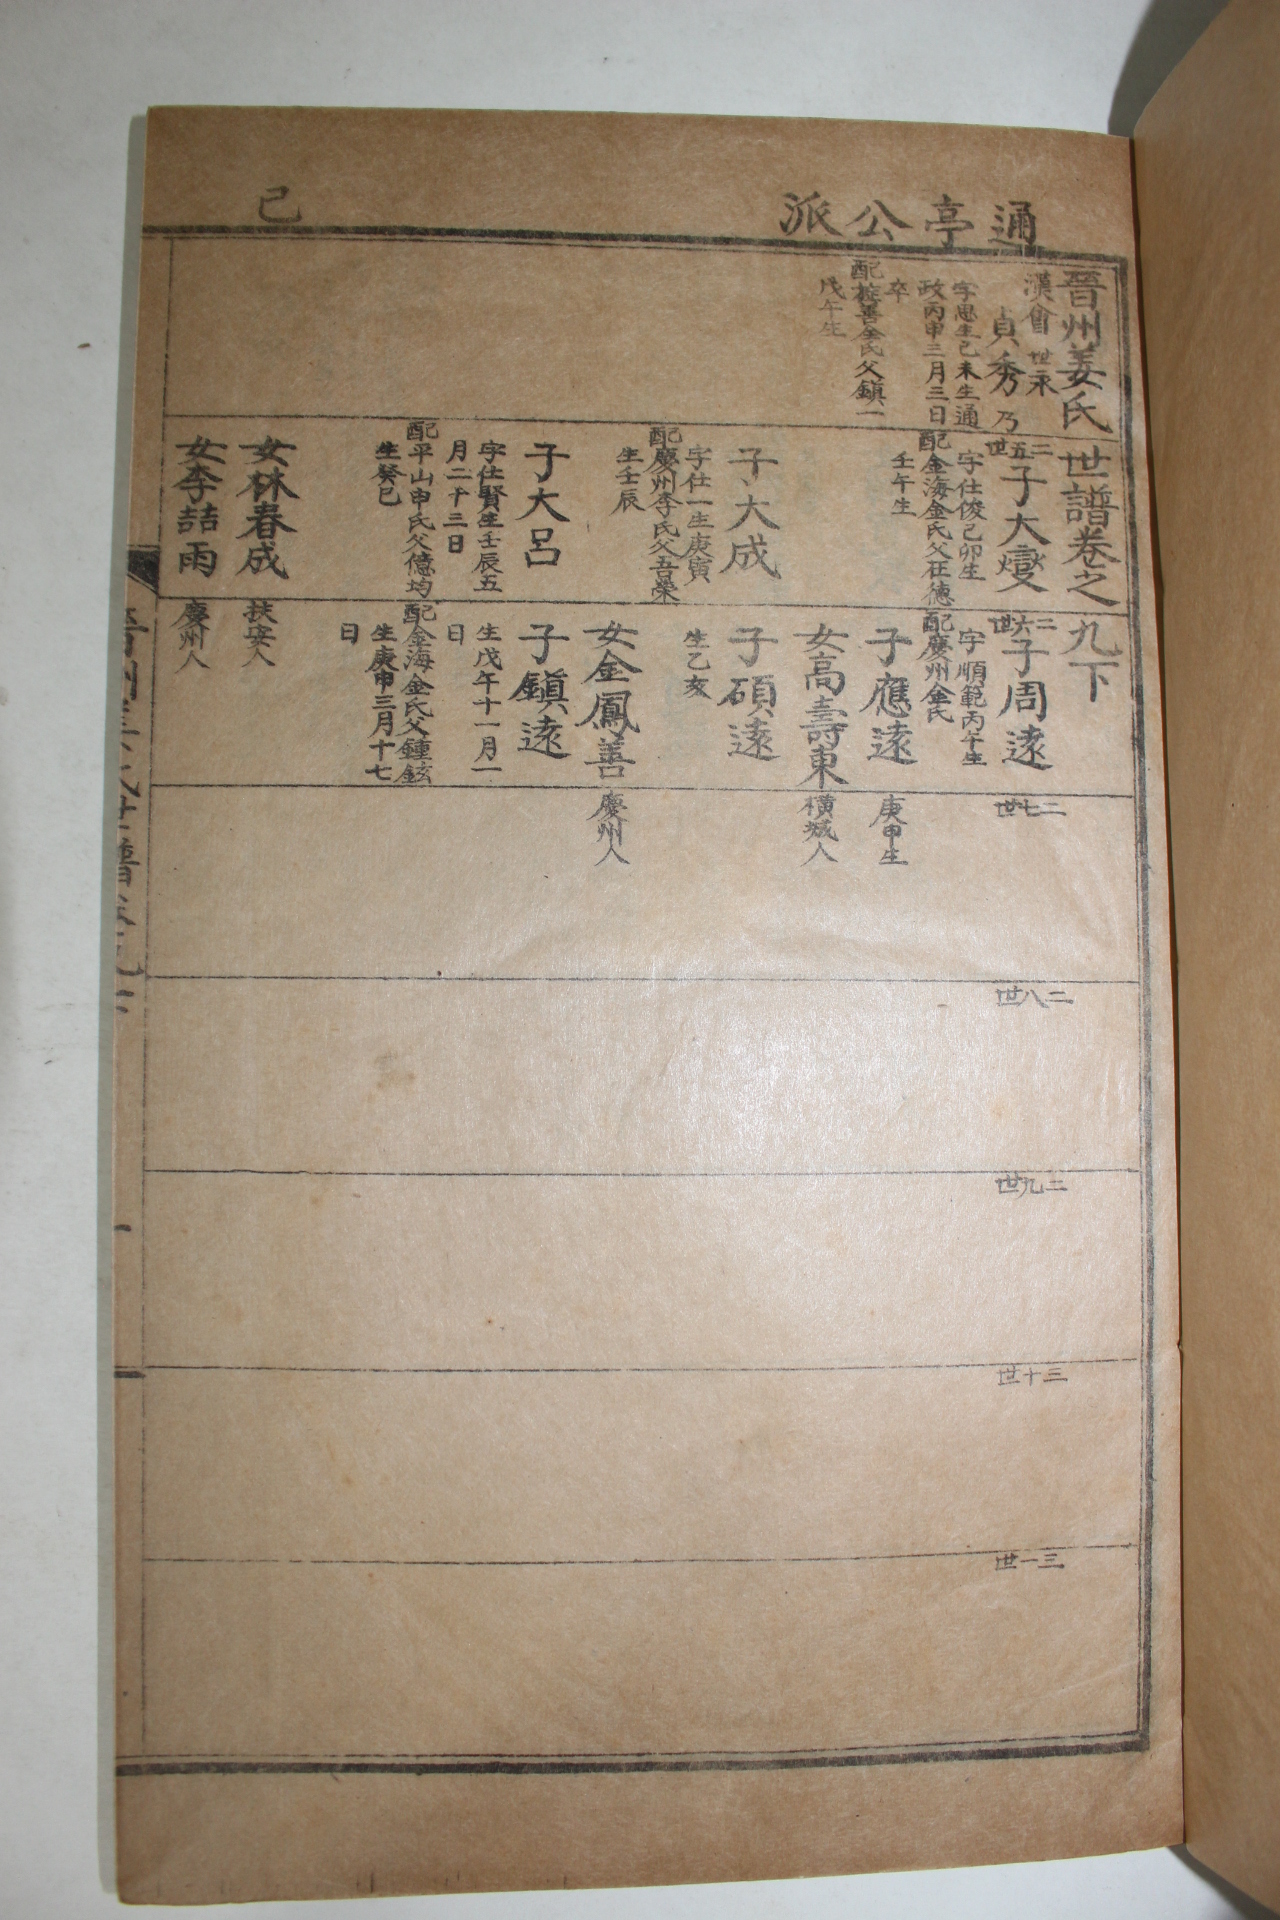 通亭公派
己
晉州姜氏世譜卷之九下
漢會
世永
貞秀 乃
字思生己未生通
政丙申三月三日
卒
配旌善金氏父鎭一
戊午生
二五世
子大燮
字仕俊己卯生
配金海金氏父在德
壬午生
子大成
字仕一生庚寅
配慶州李氏父吾榮
生壬辰
子大呂
字仕賢生壬辰五
月二十三日
配平山申氏父億均
生癸巳
女林春成
扶安人
女李喆雨
慶州人
二六世
子周遠
字順範丙午生
配慶州金氏
子應遠
庚申生
女高壽東
橫城人
子碩遠
生乙亥
女金鳳善
慶州人
子鎭遠
生戊午十一月一
日
配金海金氏父鍾鉉
生庚申三月十七
日
二七世
二八世
二九世
三十世
三一世
晉州姜氏世譜卷九下
一